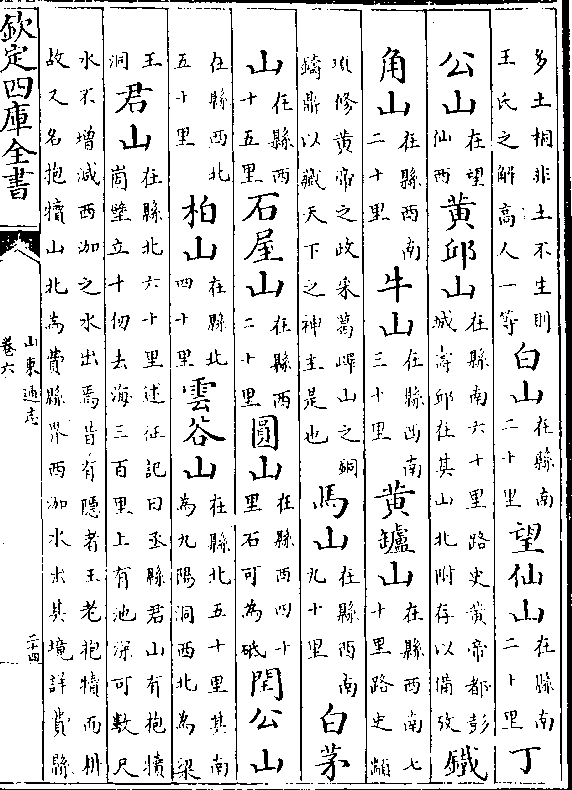 多土桐非土不生則王氏之解高人一等白山在縣南二十里望仙山在縣南二十里丁
公山在望仙西黃邱山在縣南六十里路史黃帝都彭城壽邱在其山北附存以備攷鐵
角山在縣西南二十里牛山在縣西南三十里黃鑪山在縣西南七十里路史顓
頊修黃帝之政采葛嶧山之銅鑄鼎以藏天下之神主是也馬山在縣西南九十里白茅
山在縣西十五里石屋山在縣西二十里圓山在縣西四十里石可為砥公山
在縣西北五十里柏山在縣北四十里雲谷山在縣北五十里其南為九陽洞西北為梁
王洞君山在縣北六十里述征記曰丞縣君山有抱犢崮壁立十仞去海三百里上有池深可數尺
水不增減西泇之水出焉昔有隱者王老抱犢而畊故又名抱犢山北為費縣界西泇水出其境詳費縣
欽定四庫全書
山東通志
卷六
二十四